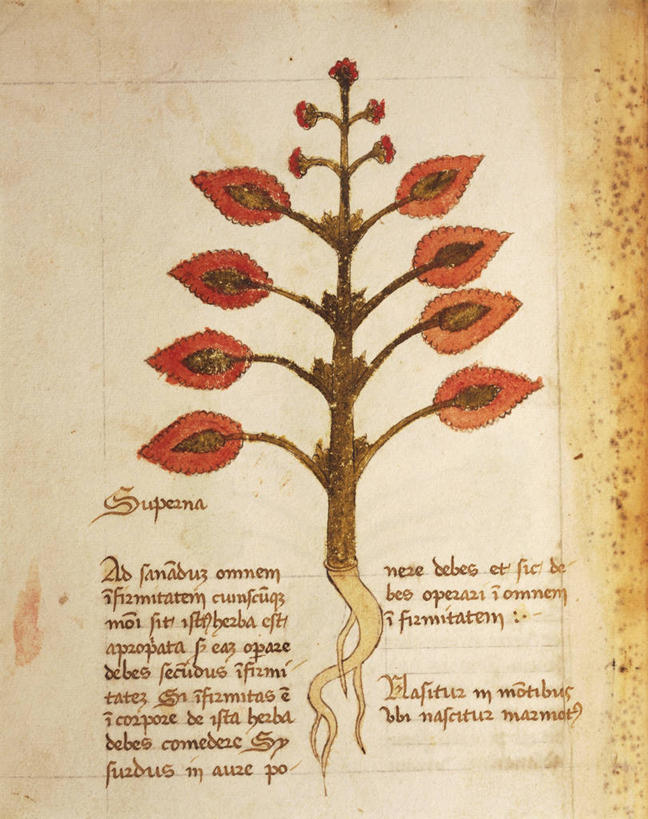 Superna
Ad sanãduz omnem
ĩfirmitatem cuiuscũqz
mõi sit istꝰ herba est
apropata sꝫ eaz oꝑare
debes secũdus ĩfirmi
tatez Si ĩfirmitas ẽ
ĩ corpore de ista herba
debes comedere Sy
surdus in aure po-
nere debes et sic de-
bes operari ĩ omnem
ĩ firmitatem :-
Nasitur in mõtibus
vbi nascitur marmotꝰ